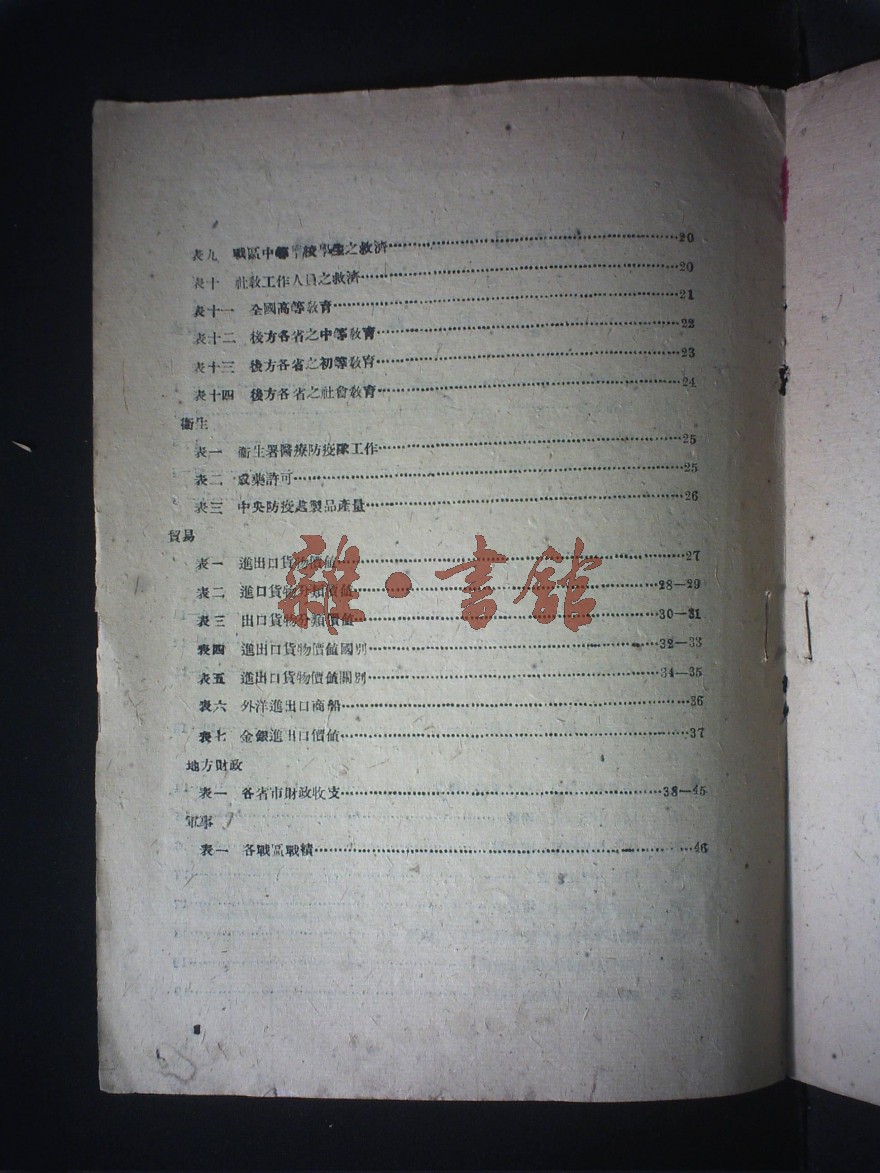 表九　戰區中等學校學生之救濟…………20
表十　社教工作人員之救濟…………20
表十一　全國高等教育…………21
表十二　後方各省之中等教育…………22
表十三　後方各省之初等教育…………23
表十四　後方各省之社會教育…………24
衞生
表一　衞生署醫療防疫隊工作…………25
表二　成藥許可…………25
表三　中央防疫處製品產量…………26
貿易
表一　進出口貨物價値…………27
表二　進口貨物分類價値…………28—29
表三　出口貨物分類價値…………30—31
表四　進出口貨物價値國別…………32—33
表五　進出口貨物價値關別…………34—35
表六　外洋進出口商船…………36
表七　金銀進出口價値…………37
地方財政
表一　各省市財政收支…………38—45
軍事
表一　各戰區戰績…………46
雜·書館